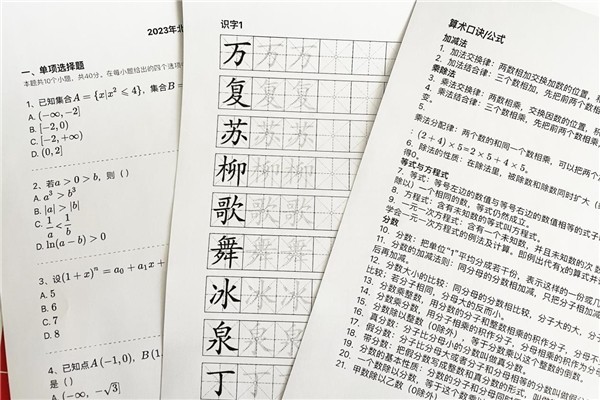 2023年北
一、单项选择题
本题共10个小题，共40分。在每小题给出的四个选项
1、已知集合A = {x|x² ⩽ 4}，集合B =
A. (−∞, −2]
B. [−2, 0)
C. [−2, +∞)
D. (0, 2]
2、若a > 0 > b，则（ ）
A. a³ > b³
B. |a| > |b|
C. 1/a < 1/b
D. ln(a − b) > 0
3、设(1 + x)ⁿ = a₀ + a₁x +
A. 5
B. 6
C. 7
D. 8
4、已知点A(−1, 0)，B(1,
是（ ）
A. (−∞, −√3]
识字1
万 万 万
复 复 复
苏 苏 苏
柳 柳 柳
歌 歌 歌
舞 舞 舞
冰 冰 冰
泉 泉 泉
丁 丁
算术口诀/公式
加减法
1. 加法交换律：两数相加交换加数的位置，和
2. 加法结合律：三个数相加，先把前两个数相
乘除法
3. 乘法交换律：两数相乘，交换因数的位置，积
4. 乘法结合律：三个数相乘，先把前两个数相乘，
变。
5.
乘法分配律：两个数的和同一个数相乘，可以把两个
：(2+4)×5=2×5+4×5。
6. 除法的性质：在除法里，被除数和除数同时扩大
得0。
等式与方程式
7. 等式：等号左边的数值与等号右边的数值相等的式子
除以）一个相同的数，等式仍然成立。
8. 方程式：含有未知数的等式叫方程式。
9. 一元一次方程式：含有一个未知数，并且未知数的次
学会一元一次方程式的例法及计算。即例出代有χ的算式并
分数
10. 分数：把单位“1”平均分成若干份，表示这样的一份或几
11. 分数的加减法则：同分母的分数相加减，只把分子相加减
后再加减。
12. 分数大小的比较：同分母的分数相比较，分子大的大，分子
比较；若分子相同，分母大的反而小。
13. 分数乘整数，用分数的分子和整数相乘的积作分子，分母不
14. 分数乘分数，用分子相乘的积作分子，分母相乘的积作为分母
15. 分数除以整数（0除外），等于分数乘以这个整数的倒数。
16. 真分数：分子比分母小的分数叫做真分数。
17. 假分数：分子比分母大或者分子和分母相等的分数叫做假分
18. 带分数：把假分数写成整数和真分数的形式，叫做
19. 分数的基本性质：分数的分子和分母同时
20. 一个数除以分数，等于这个数乘以
21. 甲数除以乙数（0除外）